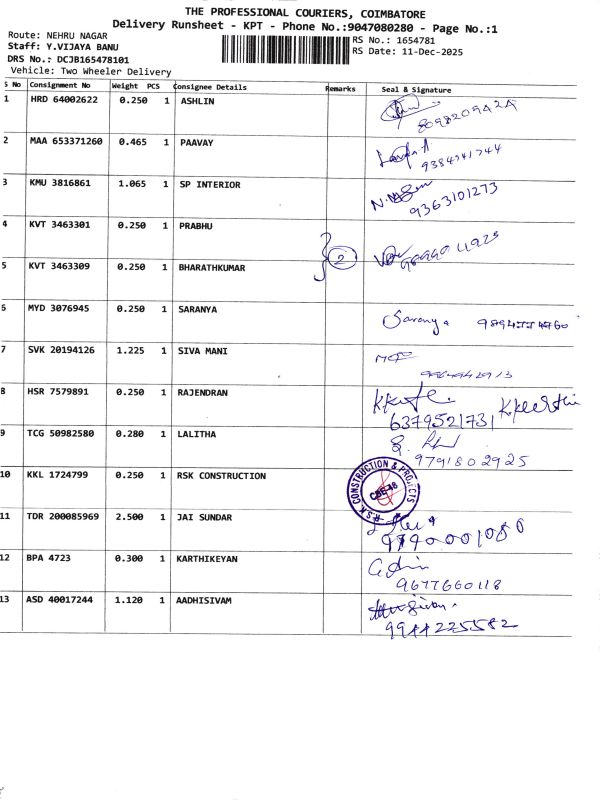 THE PROFESSIONAL COURIERS, COIMBATORE
Delivery Runsheet - KPT - Phone No.:9047080280 - Page No.:1
Route: NEHRU NAGAR
RS No.: 1654781
Staff: Y.VIJAYA BANU
RS Date: 11-Dec-2025
DRS No.: DCJB165478101
Vehicle: Two Wheeler Delivery
S No Consignment No Weight PCS Consignee Details Remarks Seal & Signature
1 HRD 64002622 0.250 1 ASHLIN
2 MAA 653371260 0.465 1 PAAVAY
3 KMU 3816861 1.065 1 SP INTERIOR
9363101273
4 KVT 3463301 0.250 1 PRABHU
2
5 KVT 3463309 0.250 1 BHARATHKUMAR
6 MYD 3076945 0.250 1 SARANYA
Saranya
7 SVK 20194126 1.225 1 SIVA MANI
8 HSR 7579891 0.250 1 RAJENDRAN
6379521731 Kkeerthi
9 TCG 50982580 0.280 1 LALITHA
9791802925
10 KKL 1724799 0.250 1 RSK CONSTRUCTION
R.S.K CONSTRUCTION & PROJECTS
CBE-18
11 TDR 200085969 2.500 1 JAI SUNDAR
9790001080
12 BPA 4723 0.300 1 KARTHIKEYAN
9677660118
13 ASD 40017244 1.120 1 AADHISIVAM
9944225582